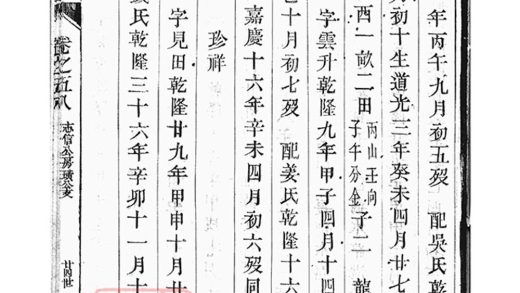 年丙午九月初五歿 配吳氏乾
初十生道光三年癸未四月廿七
西一畝二田 丙山壬向 子午分金 子二 龍
字雲升乾隆九年甲子四月十
十月初七歿 配姜氏乾隆十六
嘉慶十六年辛未四月初六歿同
珍祥
字見田乾隆廿九年甲申十月廿
氏乾隆三十六年辛卯十一月十
卷之五八 志信公房 公支 廿四世